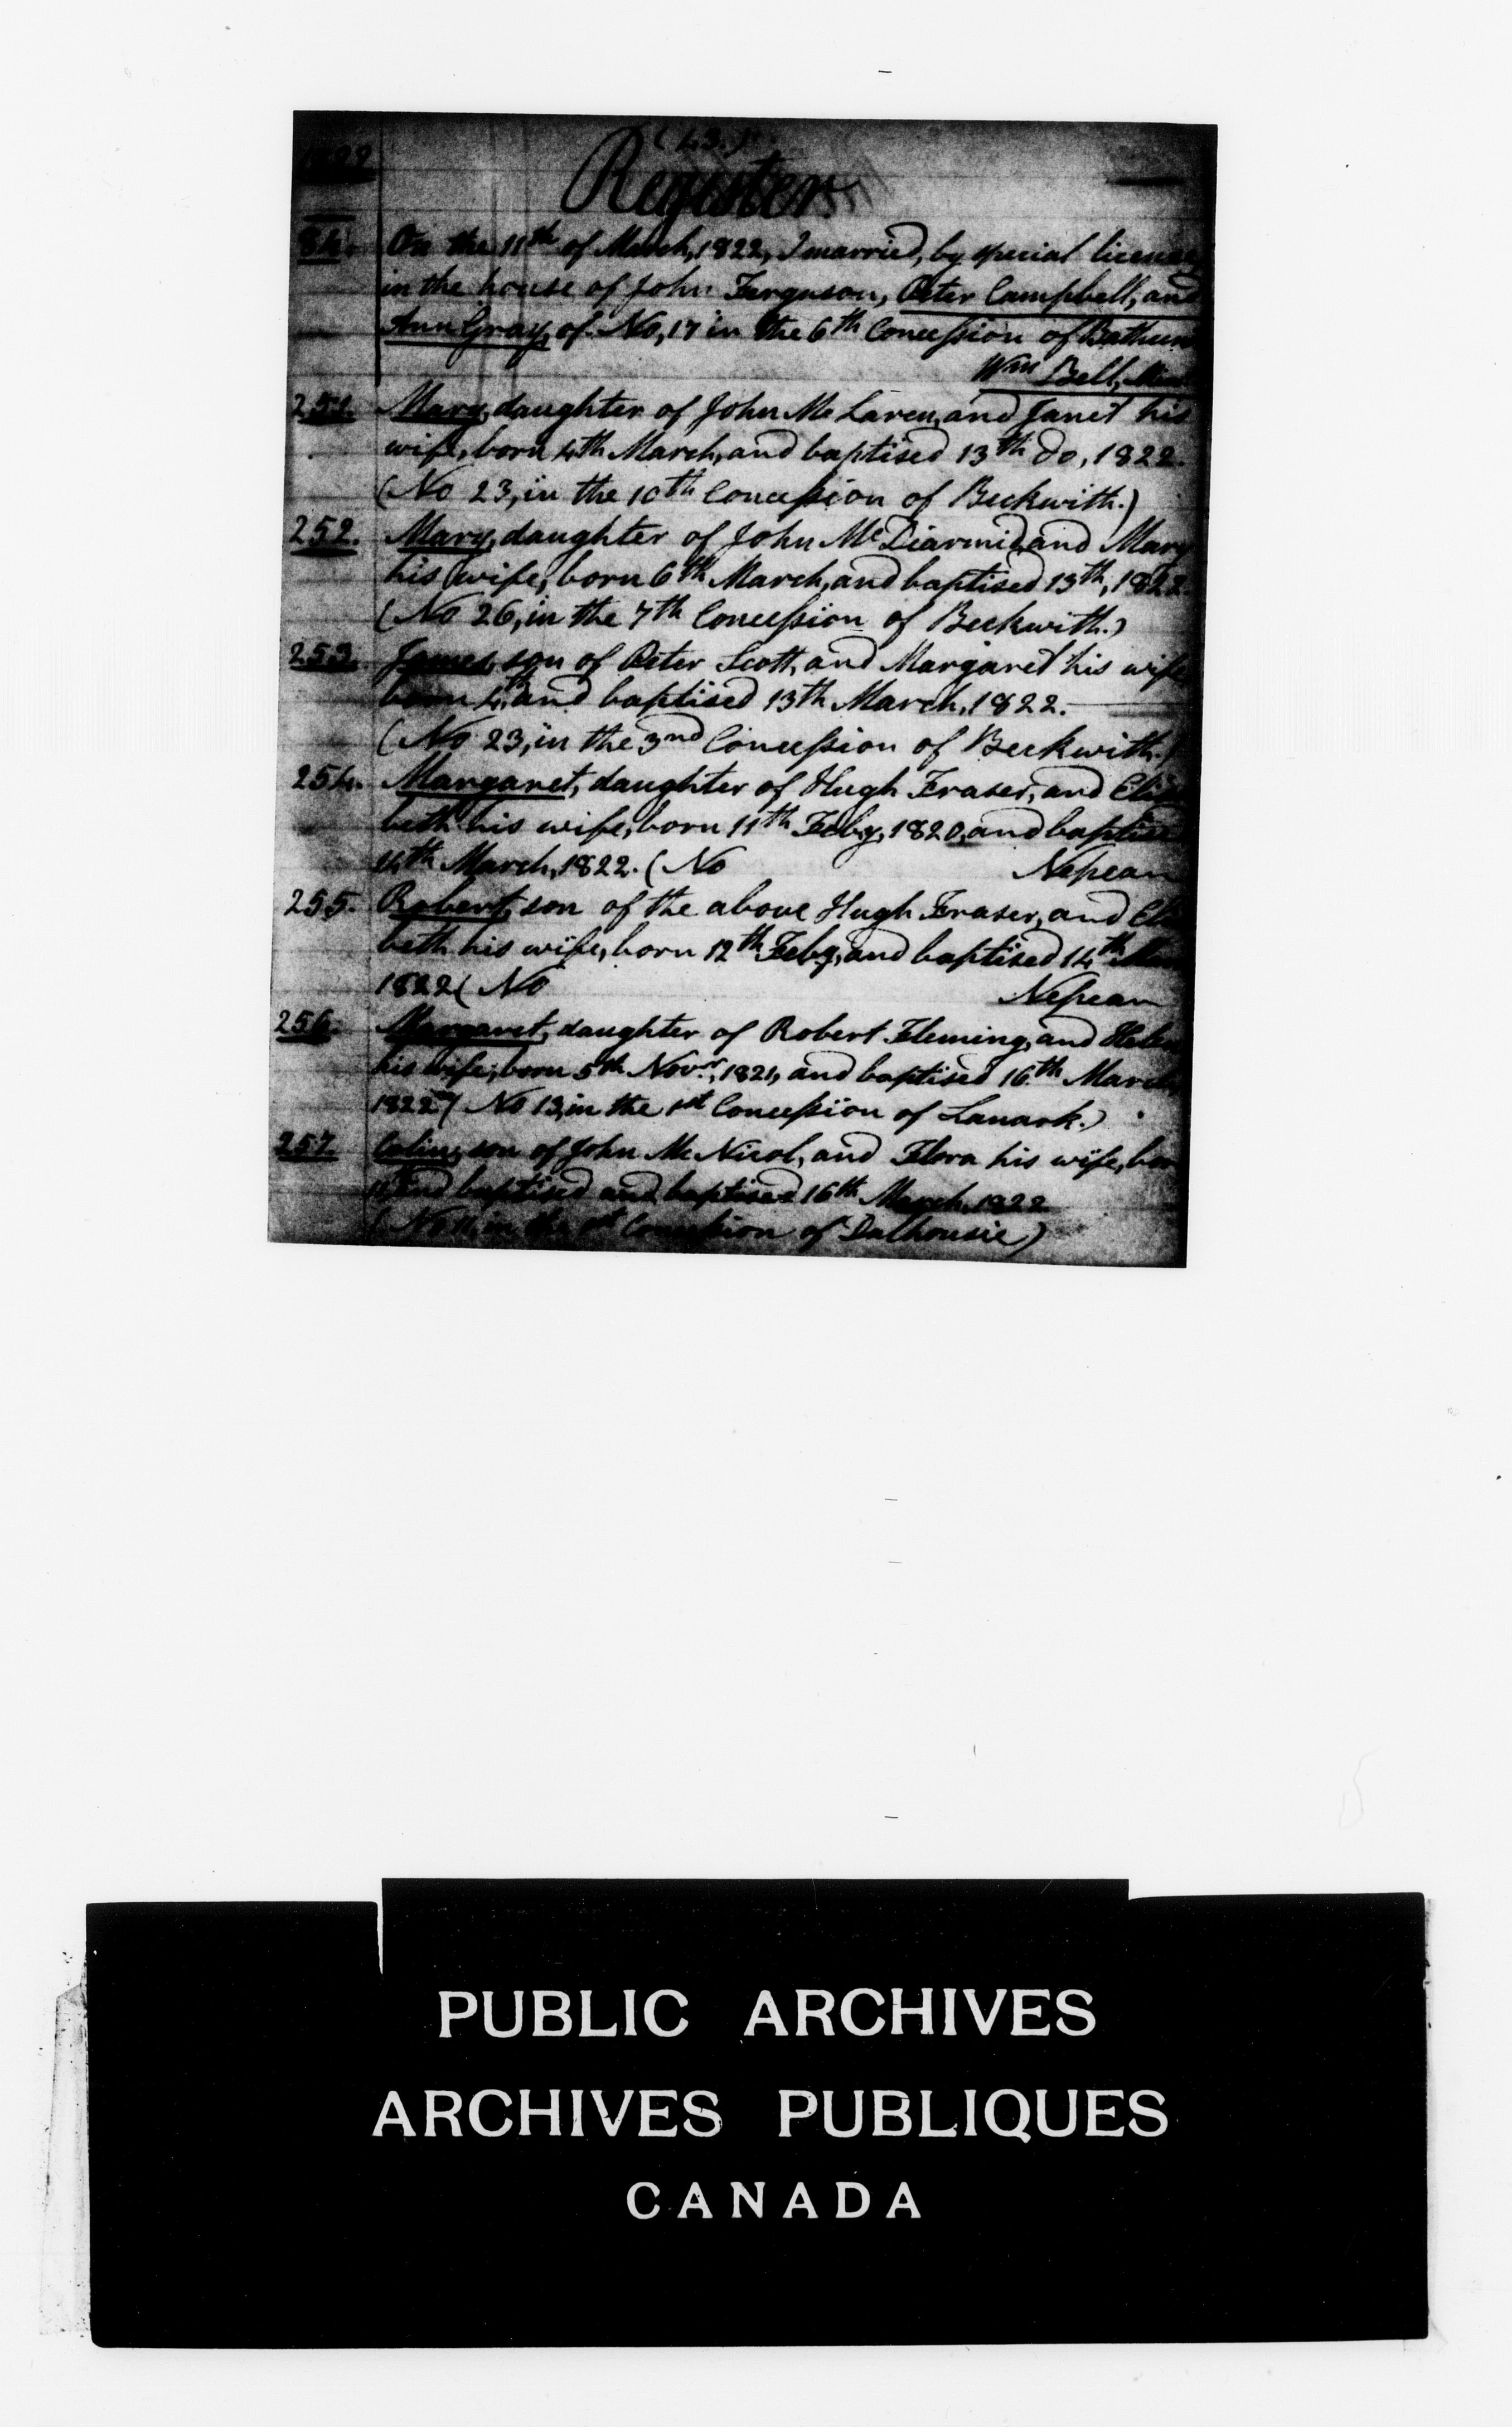 (43.)
1822
Register
84. On the 11th of March, 1822, I married, by special license
in the house of John Ferguson, Peter Campbell, and
Ann Gray, of No, 17 in the 6th Concession of
Wm Bell,
251. Mary, daughter of John McLaren, and Janet his
wife, born 4th March, and baptised 13th do, 1822.
(No 23, in the 10th Concession of Beckwith.)
252. Mary, daughter of John McDiarmid, and Mary
his wife, born 6th March, and baptised 13th, 1822.
(No 26, in the 7th Concession of Beckwith.)
253. James, son of Peter Scott, and Margaret his wife
born 4th, and baptised 13th March, 1822.
(No 23, in the 3rd Concession of Beckwith.)
254. Margaret, daughter of Hugh Fraser, and Eliza
beth his wife, born 11th Feby, 1820, and baptised
14th March, 1822. (No Nepean
255. Robert, son of the above Hugh Fraser, and Eliza
beth his wife, born 12th Feby, and baptised 14th
1822 (No Nepean
256. Margaret, daughter of Robert Fleming, and Helen
his wife, born 5th Novr, 1821, and baptised 16th March
1822 (No 13, in the 1st Concession of Lanark.)
257. Colin, son of John McNicol, and Flora his wife, born
and baptised and baptised 16th March, 1822
(No 11, in the 1st Concession of Dalhousie)
PUBLIC ARCHIVES
ARCHIVES PUBLIQUES
CANADA